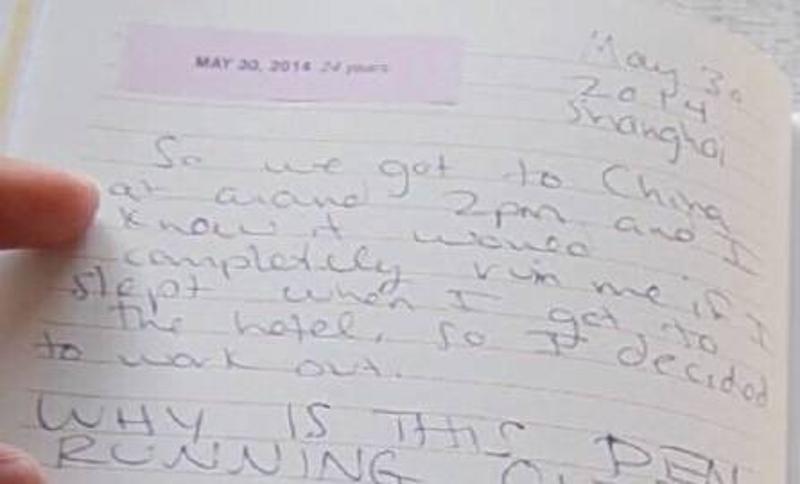 MAY 30, 2014 24 years
May 30
2014
Shanghai
So we got to China
at around 2pm and I
know it would
completely ruin me if I
slept when I got to
the hotel, so I decided
to work out.
WHY IS THIS PEN
RUNNING